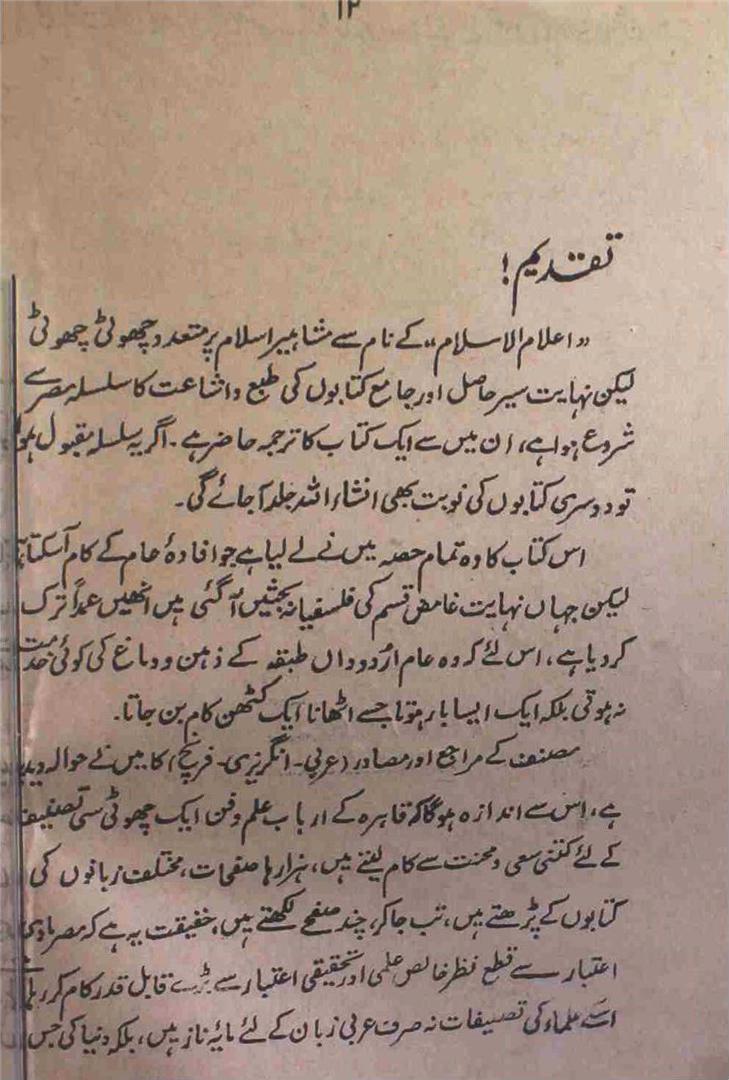 ۱۲
تقدیم!
"اعلام الاسلام" کے نام سے مشاہیر اسلام پر متعدد چھوٹی چھوٹی
لیکن نہایت سیر حاصل اور جامع کتابوں کی طبع و اشاعت کا سلسلہ مصر سے
شروع ہوا ہے، ان میں سے ایک کتاب کا ترجمہ حاضر ہے۔ اگر یہ سلسلہ مقبول ہوا
تو دوسری کتابوں کی نوبت بھی انشاء اللہ جلد آ جائے گی۔
اس کتاب کا وہ تمام حصہ میں نے لے لیا ہے جو افادۂ عام کے کام آ سکتا
لیکن جہاں نہایت غامض قسم کی فلسفیانہ بحثیں آ گئی ہیں انھیں عمداً ترک
کر دیا ہے، اس لئے کہ وہ عام اُردو داں طبقہ کے ذہن و دماغ کی کوئی خدمت
نہ ہوتی بلکہ ایک ایسا بار ہوتا جسے اٹھانا ایک کٹھن کام بن جاتا۔
مصنف کے مراجع اور مصادر (عربی۔ انگریزی۔ فرنچ) کا میں نے حوالہ دیدیا
ہے، اس سے اندازہ ہو گا کہ قاہرہ کے ارباب علم و فن ایک چھوٹی سی تصنیف
کے لئے کتنی سعی و محنت سے کام لیتے ہیں، ہزارہا صفحات، مختلف زبانوں کی
کتابوں کے پڑھتے ہیں، تب جا کر، چند صفحے لکھتے ہیں، حقیقت یہ ہے کہ مصر مادی
اعتبار سے قطع نظر خالص علمی اور تحقیقی اعتبار سے بڑے قابل قدر کام کر رہا
اسکے علماء کی تصنیفات نہ صرف عربی زبان کے لئے مایۂ ناز ہیں، بلکہ دنیا کی جس